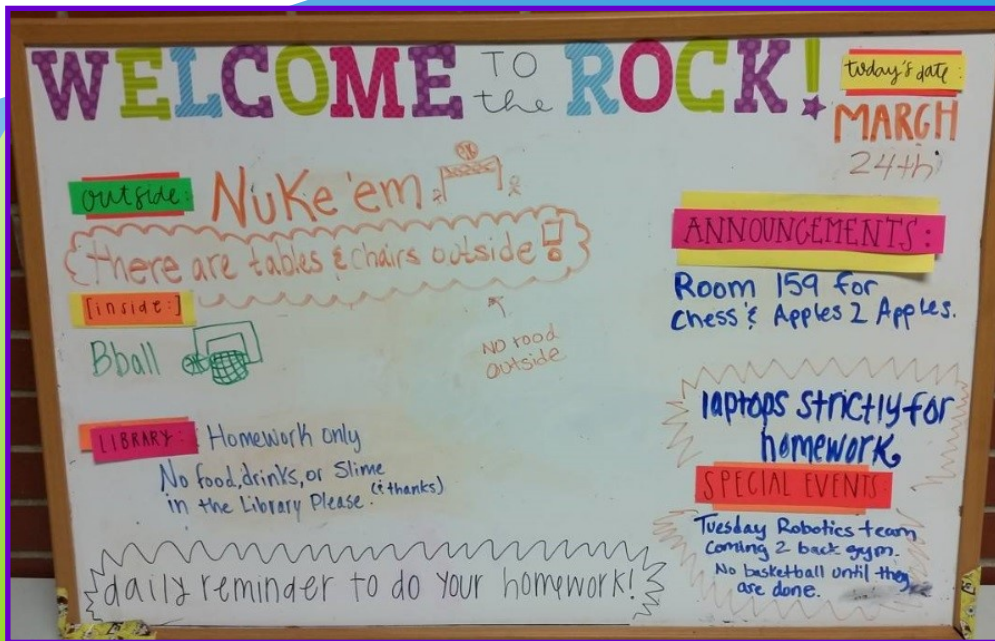 WELCOME TO the ROCK!
today's date:
MARCH
24th
outside: Nuke 'em
there are tables & chairs outside!
[inside:]
Bball
NO food
outside
LIBRARY: Homework only
No food, drinks, or Slime
in the Library Please. (& thanks)
daily reminder to do your homework!
ANNOUNCEMENTS:
Room 159 for
Chess & Apples 2 Apples.
laptops strictly for
homework
SPECIAL EVENTS:
Tuesday Robotics team
coming 2 back gym.
No basketball until they
are done.